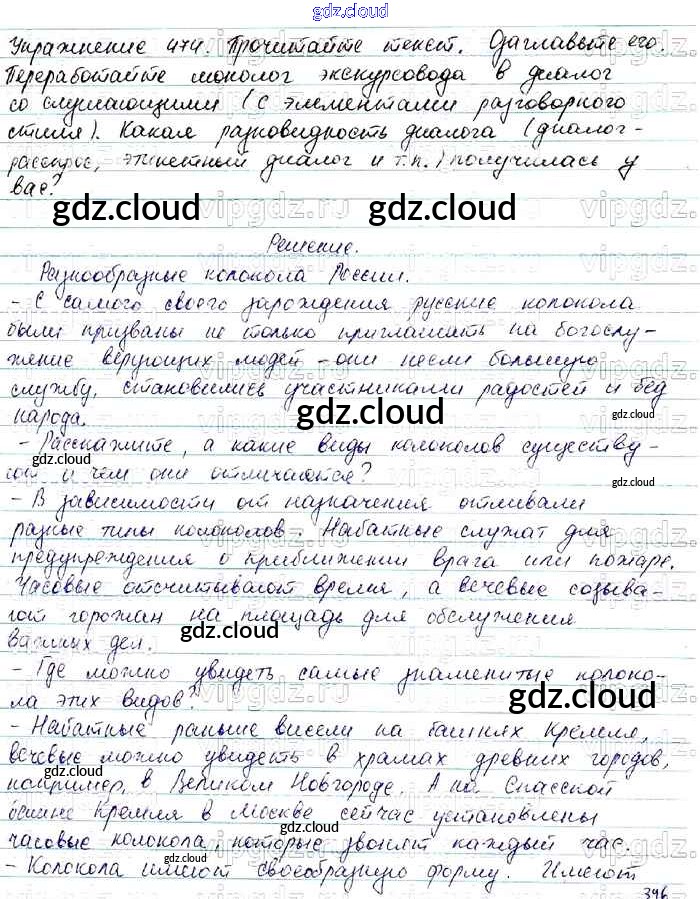 gdz.cloud
Упражнение 474. Прочитайте текст. Озаглавьте его.
Переработайте монолог экскурсовода в диалог
со слушающими (с элементами разговорного
стиля). Какая разновидность диалога (диалог-
расспрос, этикетный диалог и т.п.) получилась у
вас?
gdz.cloud
gdz.cloud
Решение.
Разнообразные колокола России.
- С самого своего зарождения русские колокола
были призваны не только приглашать на богослу-
жение верующих людей - они несли большую
службу, становились участниками радостей и бед
народа.
gdz.cloud
- Расскажите, а какие виды колоколов существу-
ют и чем они отличаются?
gdz.cloud
- В зависимости от назначения отливали
gdz.cloud
разные типы колоколов. Набатные служат для
предупреждения о приближении врага или пожаре.
Часовые отсчитывают время, а вечевые созыва-
ют горожан на площадь для обслужения
важных дел.
gdz.cloud
- Где можно увидеть самые знаменитые колоко-
ла этих видов?
gdz.cloud
- Набатные раньше висели на башнях Кремля,
вечевые можно увидеть в храмах древних городов,
например, в Великом Новгороде. А на Спасской
gdz.cloud
башне Кремля в Москве сейчас установлены
часовые колокола, которые звонят каждый час.
gdz.cloud
gdz.cloud
- Колокола имеют своеобразную форму. Имеют
gdz.cloud
396